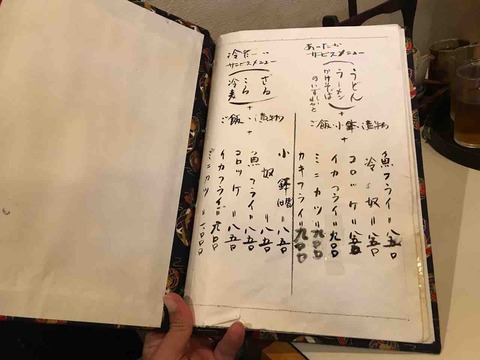 あーたかい
サービスメニュー
うどん
ラーメン
かけそば
のいずれかと
+
ご飯・小鉢・漬物
+
魚フライ=八五〇
冷奴=八五〇
コロッケ=八五〇
イカフライ=九〇〇
ミニカツ=九〇〇
カキフライ=九〇〇
冷たーい
サービスメニュー
ざる
冷麦
+
ご飯・漬物
+
小鉢=八五〇
奴=八五〇
魚フライ=八五〇
コロッケ=八五〇
イカフライ=九〇〇
ミニカツ=九〇〇